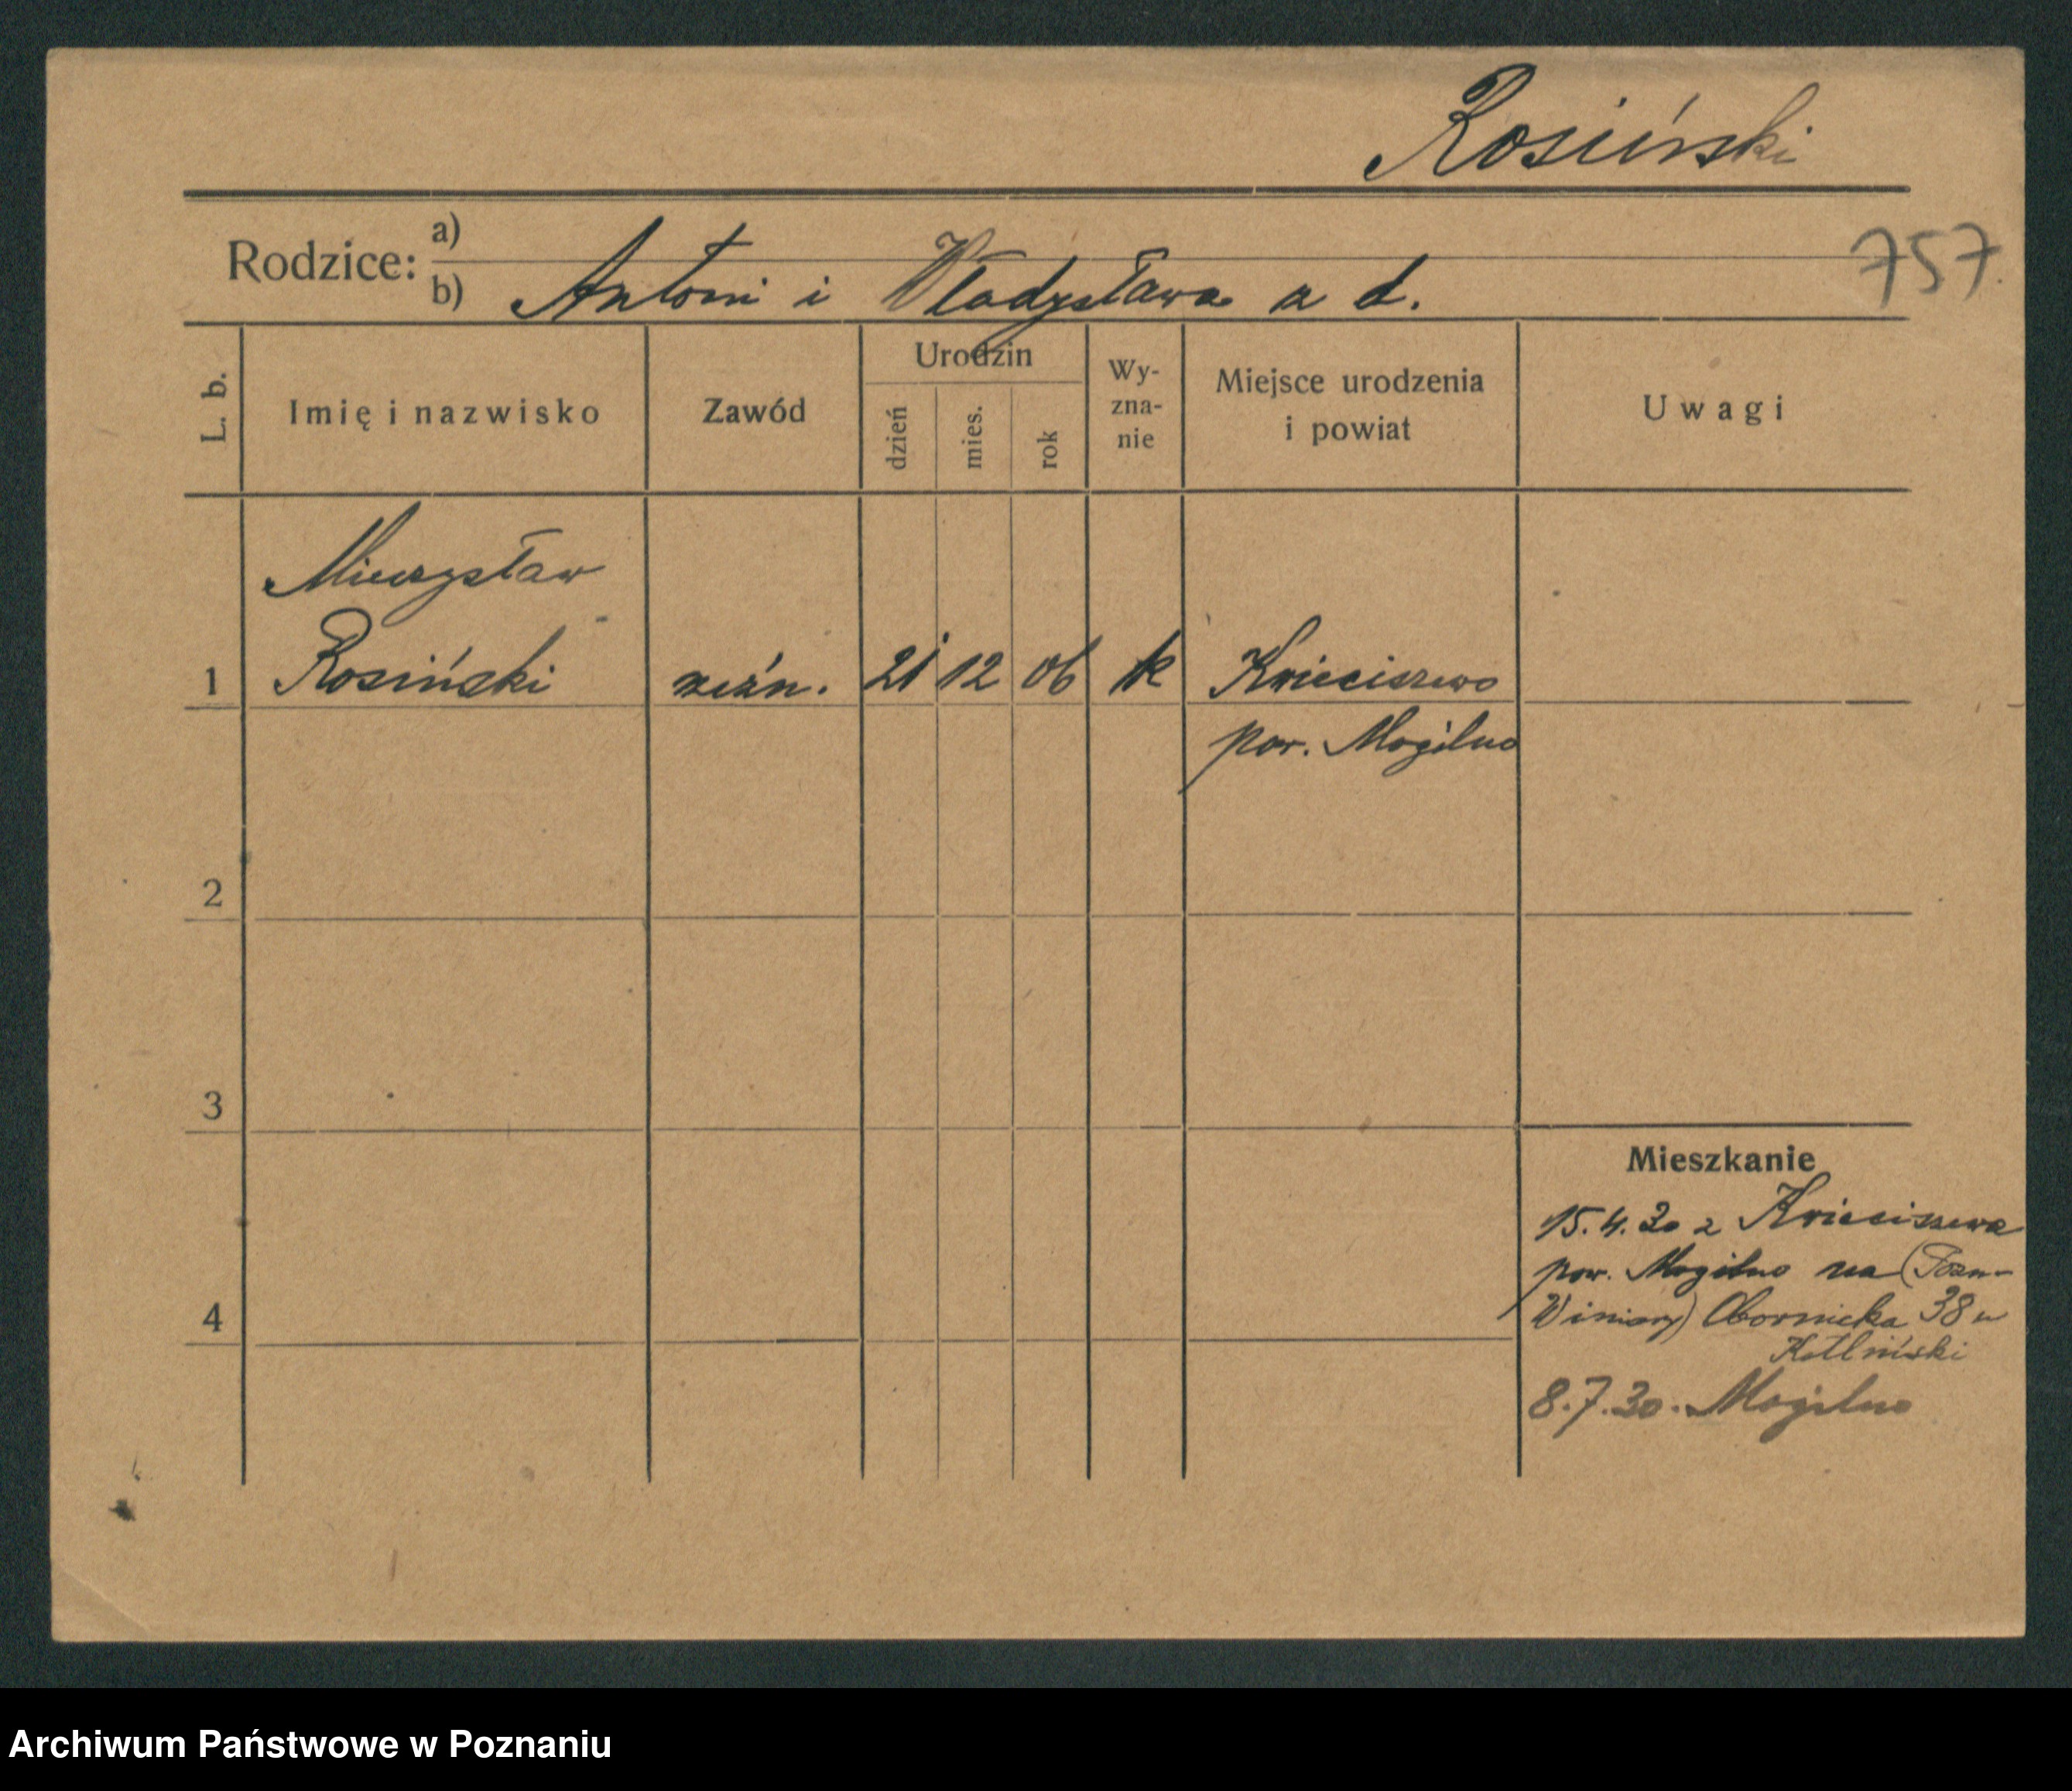 Rosiński
Rodzice: a)
b) Antoni i Władysława a d.
757
L. b.
Imię i nazwisko
Zawód
Urodzin
dzień
mies.
rok
Wy-
zna-
nie
Miejsce urodzenia
i powiat
Uwagi
Mieczysław
1 Rosiński rzeźn. 21 12 06 k Kwieciszewo
pow. Mogilno
2
3
4
Mieszkanie
15.4.30 z Kwieciszewa
pow. Mogilno na (Pozn-
Winiary) Obornicka 38 u
8.7.30. Mogilno
Archiwum Państwowe w Poznaniu